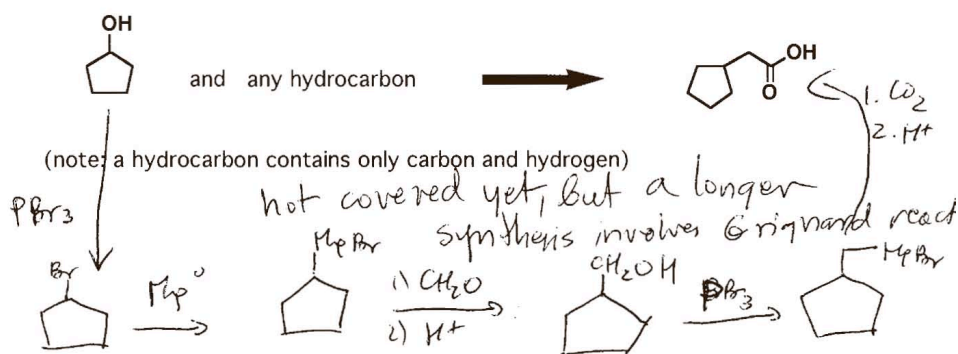 OH
and any hydrocarbon
OH
O
1. CO2
2. H+
(note: a hydrocarbon contains only carbon and hydrogen)
PBr3
not covered yet, but a longer
synthesis involves Grignard react
Br
Mg0
MgBr
1) CH2O
2) H+
CH2OH
PBr3
MgBr